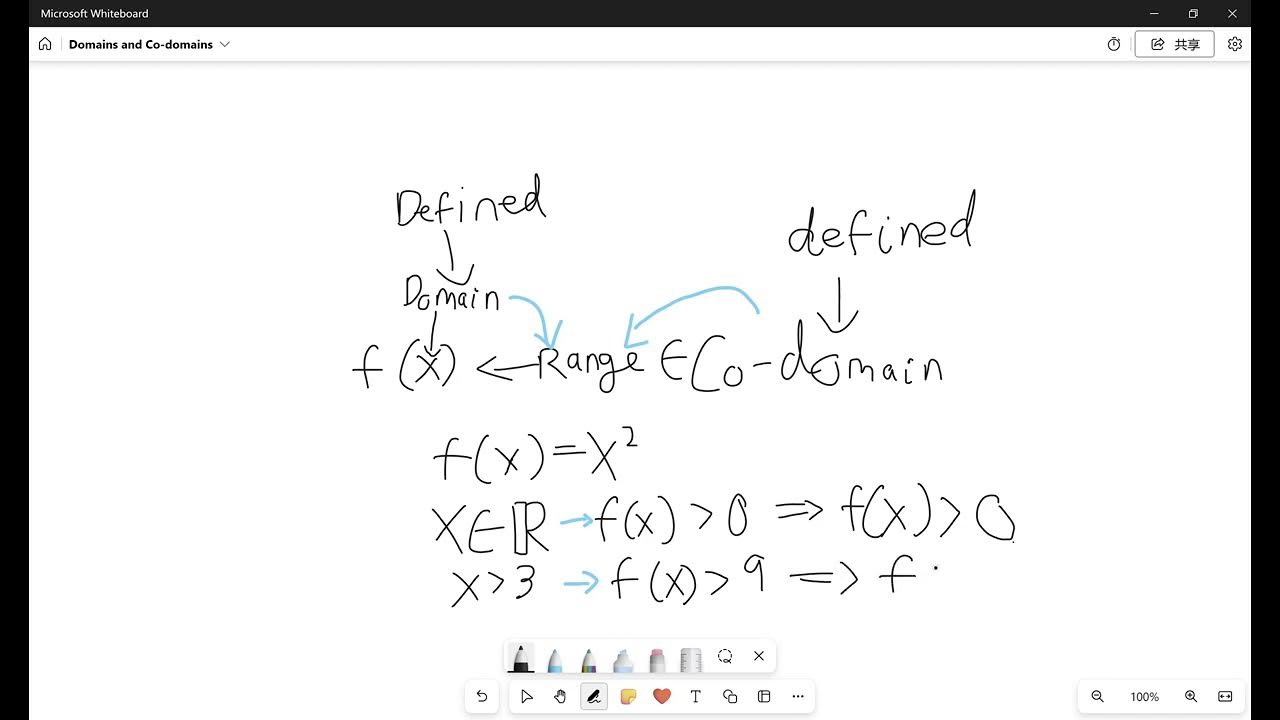 Microsoft Whiteboard
Domains and Co-domains
共享
Defined
defined
Domain
f(x) ← Range ∈ Co-domain
f(x)=x²
x∈ℝ → f(x)>0 ⇒ f(x)>0
x>3 → f(x)>9 ⇒ f
100%